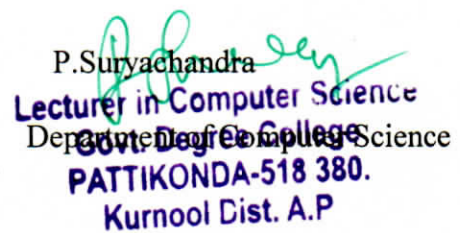 P.Suryachandra
Lecturer in Computer Science
Department of Computer Science
Govt. Degree College
PATTIKONDA-518 380.
Kurnool Dist. A.P